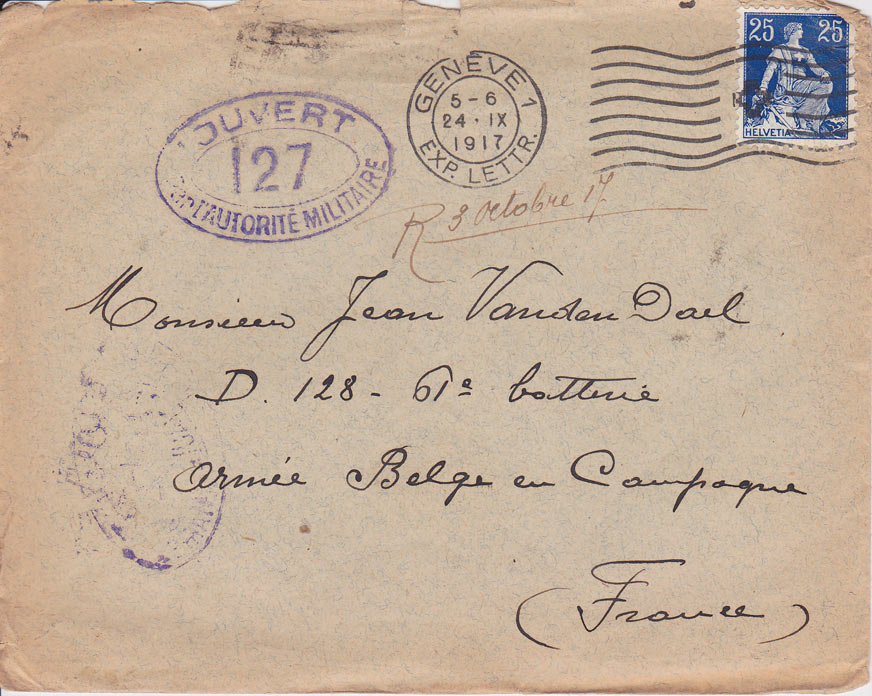 25 25
HELVETIA
GENÈVE 1
5-6
24·IX
1917
EXP. LETTR.
OUVERT
127
L'AUTORITÉ MILITAIRE
R 3 Octobre 17
Monsieur Jean Vanden Dael
D. 128 - 61e batterie
Armée Belge en Campagne
(France)